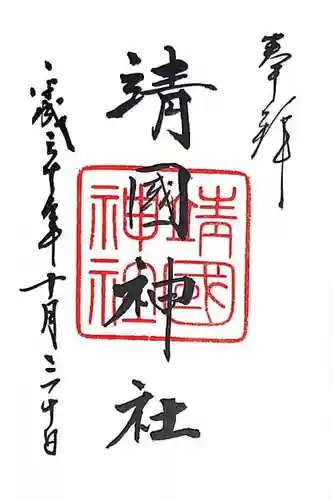 奉拝
靖國神社
靖國神社
平成三十年十月二十日